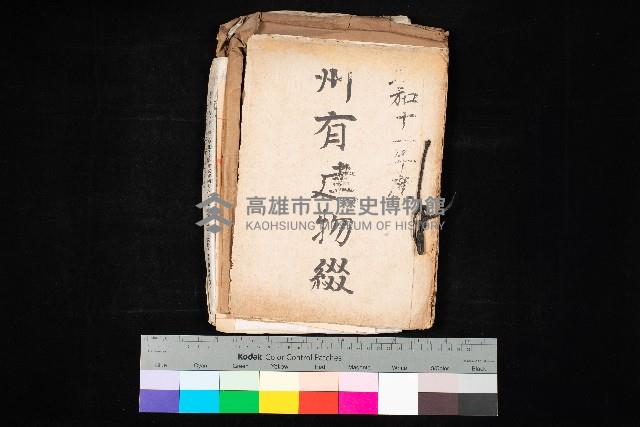 昭和十一年度
州有建物綴
高雄市立歷史博物館
KAOHSIUNG MUSEUM OF HISTORY
Kodak Color Control Patches
Blue Cyan Green Yellow Red Magenta White 3/Color Black